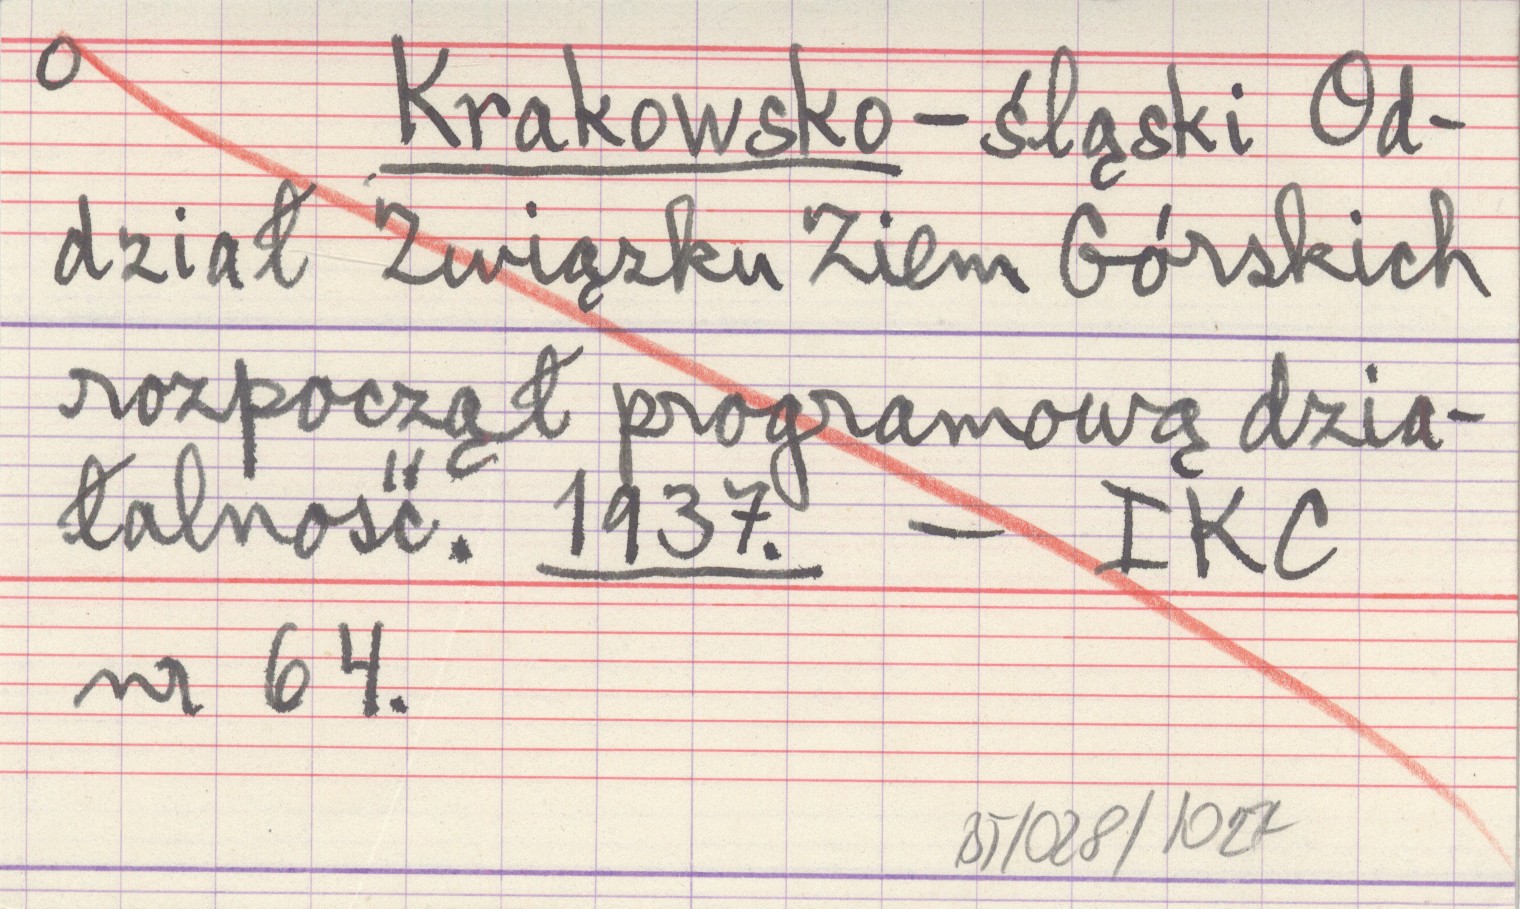 O Krakowsko-śląski Od-
dział Związku Ziem Górskich
rozpoczął programową dzia-
łalność. 1937. - IKC
nr 64.
BT/028/1027